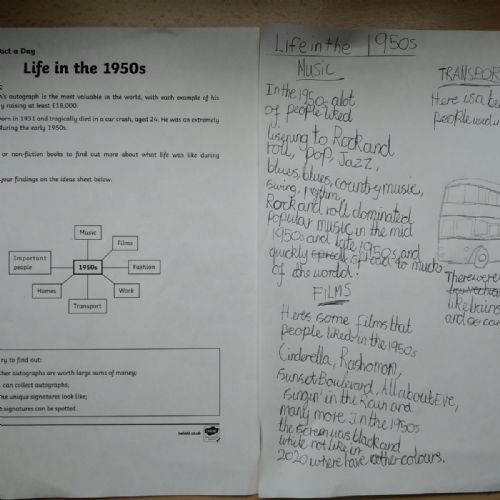 act a Day
Life in the 1950s
's autograph is the most valuable in the world, with each example of his
y raising at least £18,000.
orn in 1931 and tragically died in a car crash, aged 24. He was an extremely
during the early 1950s.
or non-fiction books to find out more about what life was like during
your findings on the ideas sheet below.
Music
Films
Important people
1950s
Fashion
Homes
Work
Transport
ry to find out:
her autographs are worth large sums of money;
can collect autographs;
me unique signatures look like;
signatures can be spotted.
twinkl.co.uk
Life in the 1950s
MUSIC
In the 1950s a lot
of people liked
listening to Rock and
roll, Pop, Jazz,
blues, blues, country music,
swing, rhythm,
Rock and roll dominated
popular music in the mid
1950s and late 1950s and
quickly spread to much
of the world!
FILMS
Heres some films that
people liked in the 1950s
Cinderella, Rashomon,
Sunset Boulevard, All about Eve,
Singin' in the Rain and
many more In the 1950s
the screen was black and
white not like in
2020 where have other colours.
TRANSPOR
Here is a
people used in
There were
like trains
and